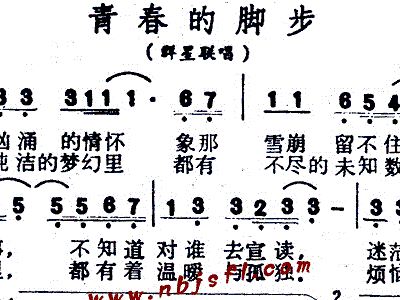 青春的脚步
(群星联唱)
3 3 3 1 1 1 · 6 7 | 1 1 6 5 4
汹涌 的情怀 象那 雪崩 留不住
纯洁的梦幻里 都有 不尽的未知数
5 5 5 6 7 | 1 3 3 2 3 3 – | 3
不知道 对谁 去宣读, 迷茫
都有着 温暖 与孤独. 烦恼
www.nbjsfl.com
2.